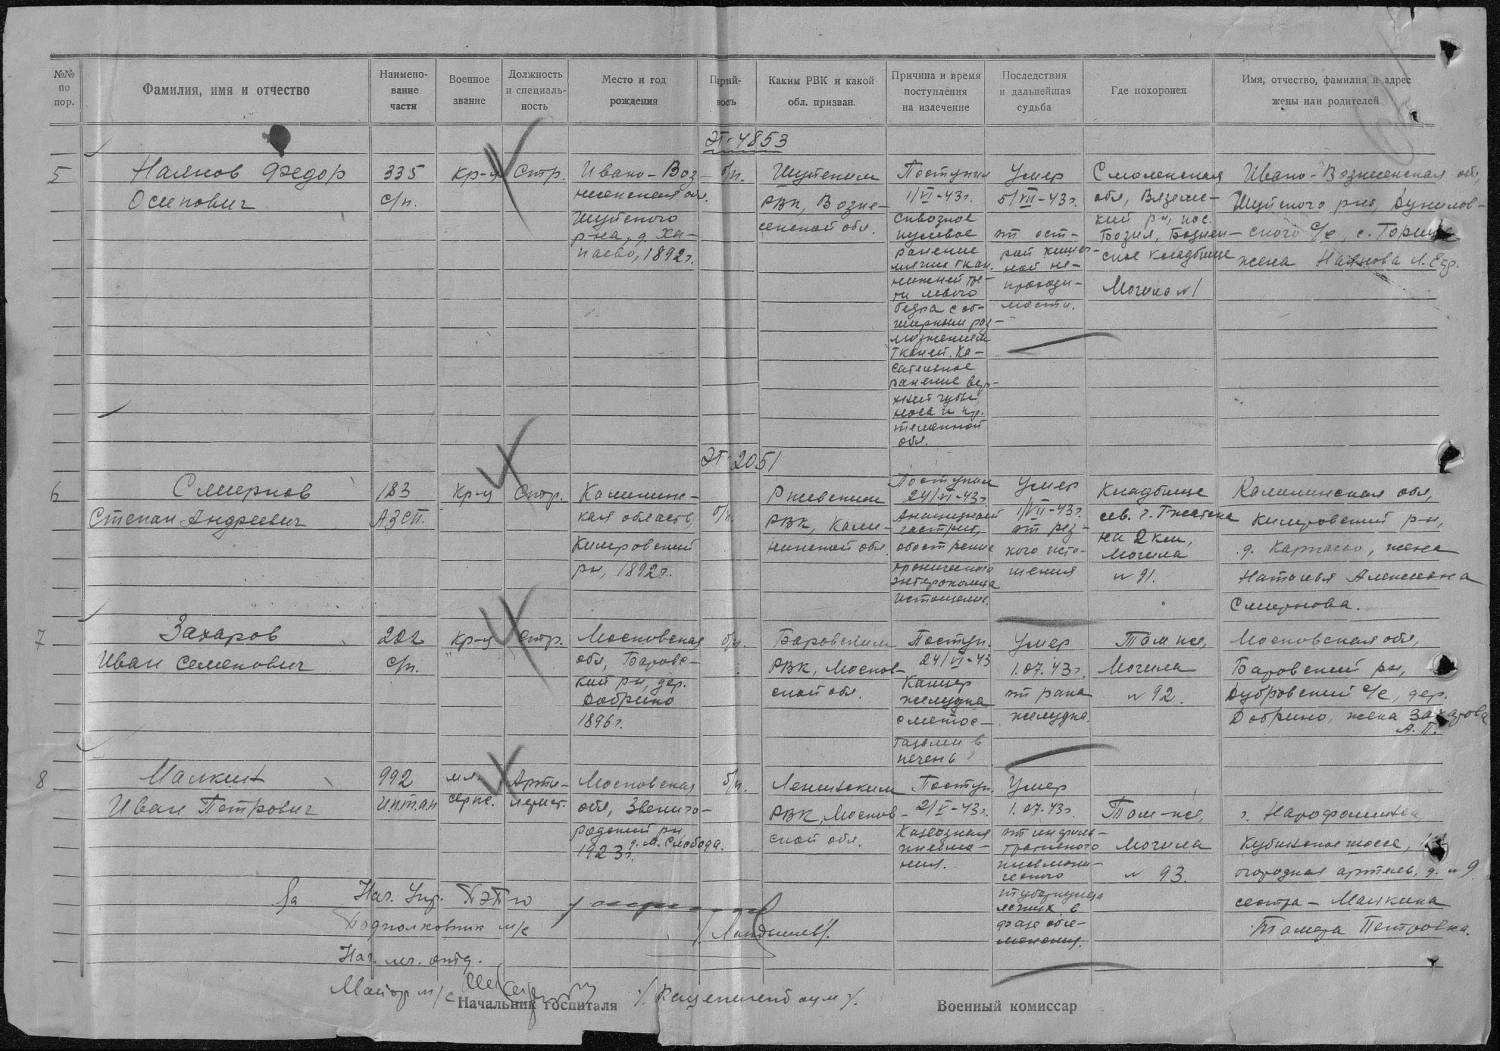 №№ по пор.
Фамилия, имя и отчество
Наимено-
вание
части
Военное
звание
Должность
и специаль-
ность
Место и год
рождения
Партий-
ность
Каким РВК и какой
обл. призван.
Причина и время
поступления
на излечение
Последствия
и дальнейшая
судьба
Где похоронен
Имя, отчество, фамилия и адрес
жены или родителей
ЭГ-4853
5
Наянов Федор
Осипович
335
с/п.
кр-ц
Стр.
Ивано-Воз-
несенская обл.
Шуйского
р-на, д.
1892г.
б/п.
Шуйским
РВК, Возне-
сенской обл.
Поступил
1/VI-43г.
Сквозное
пулевое
ранение
мягких ткан.
нижней тре-
ти левого
бедра с об-
ширным раз-
мозжением
тканей. Ка-
сательное
ранение вер-
хней губы
носа и
теменной
обл.
Умер
5/VII-43г.
от ост-
рой кишеч-
ной не-
проходи-
мости.
Смоленская
обл, Вяземс-
кий рн, пос.
кладбище
Могила №1
Ивано-Вознесенская обл,
Шуйского рна, Дунилов-
ского с/с, с. Горицы
жена Наянова
ЭГ-2051
6
Смирнов
Степан Андреевич
183
АЗСП.
кр-ц
Стр.
Калининс-
кая область,
Кимровский
рн, 1892г.
б/п.
Ржевским
РВК, Кали-
нинской обл.
Поступил
24/VI-43г.
Анацидный
гастрит,
обострение
хронического
энтероколита
истощение.
Умер
1/VII-43г.
от рез-
кого исто-
щения
Кладбище
сев. г. Гжатска
на 2 км,
Могила
№ 91.
Калининская обл,
Кимровский р-н,
д. жена
Наталья Алексеевна
Смирнова.
7
Захаров
Иван Семенович
202
с/п.
кр-ц
стр.
Московская
обл, Баровс-
кий рн, дер.
Добрино
1896г.
б/п.
Баровским
РВК, Москов-
ской обл.
Поступ.
24/VI-43
Канцер
желудка
с метас-
тазами в
печень
Умер
1.07.43г.
от рака
желудка.
Там-же,
Могила
№ 92.
Московская обл,
Баровский рн,
Дубровский с/с, дер.
Добрино, жена Захарова
А. П.
8
Малкин
Иван Петрович
992
иптап
мл.
серж.
Арти-
лерист.
Московская
обл, Звениго-
родский рн,
д. М. Слобода.
1923г.
б/п.
Ленинским
РВК, Москов-
ской обл.
Поступ.
2/VI-43г.
Казеозная
пневмо-
ния.
Умер
1.07.43г.
от инфиль-
тративного
пневмони-
ческого
туберкулеза
легких в
фазе обсе-
менения.
Там-же,
Могила
№ 93.
г. Нарофоминск
Кубинское шоссе,
огородная артель, д. №9
сестра - Малкина
Тамара Петровна.
За Нач. Упр. ПЭП-10
Подполковник м/с
Нач. леч. отд.
Майор м/с
Начальник госпиталя
Военный комиссар